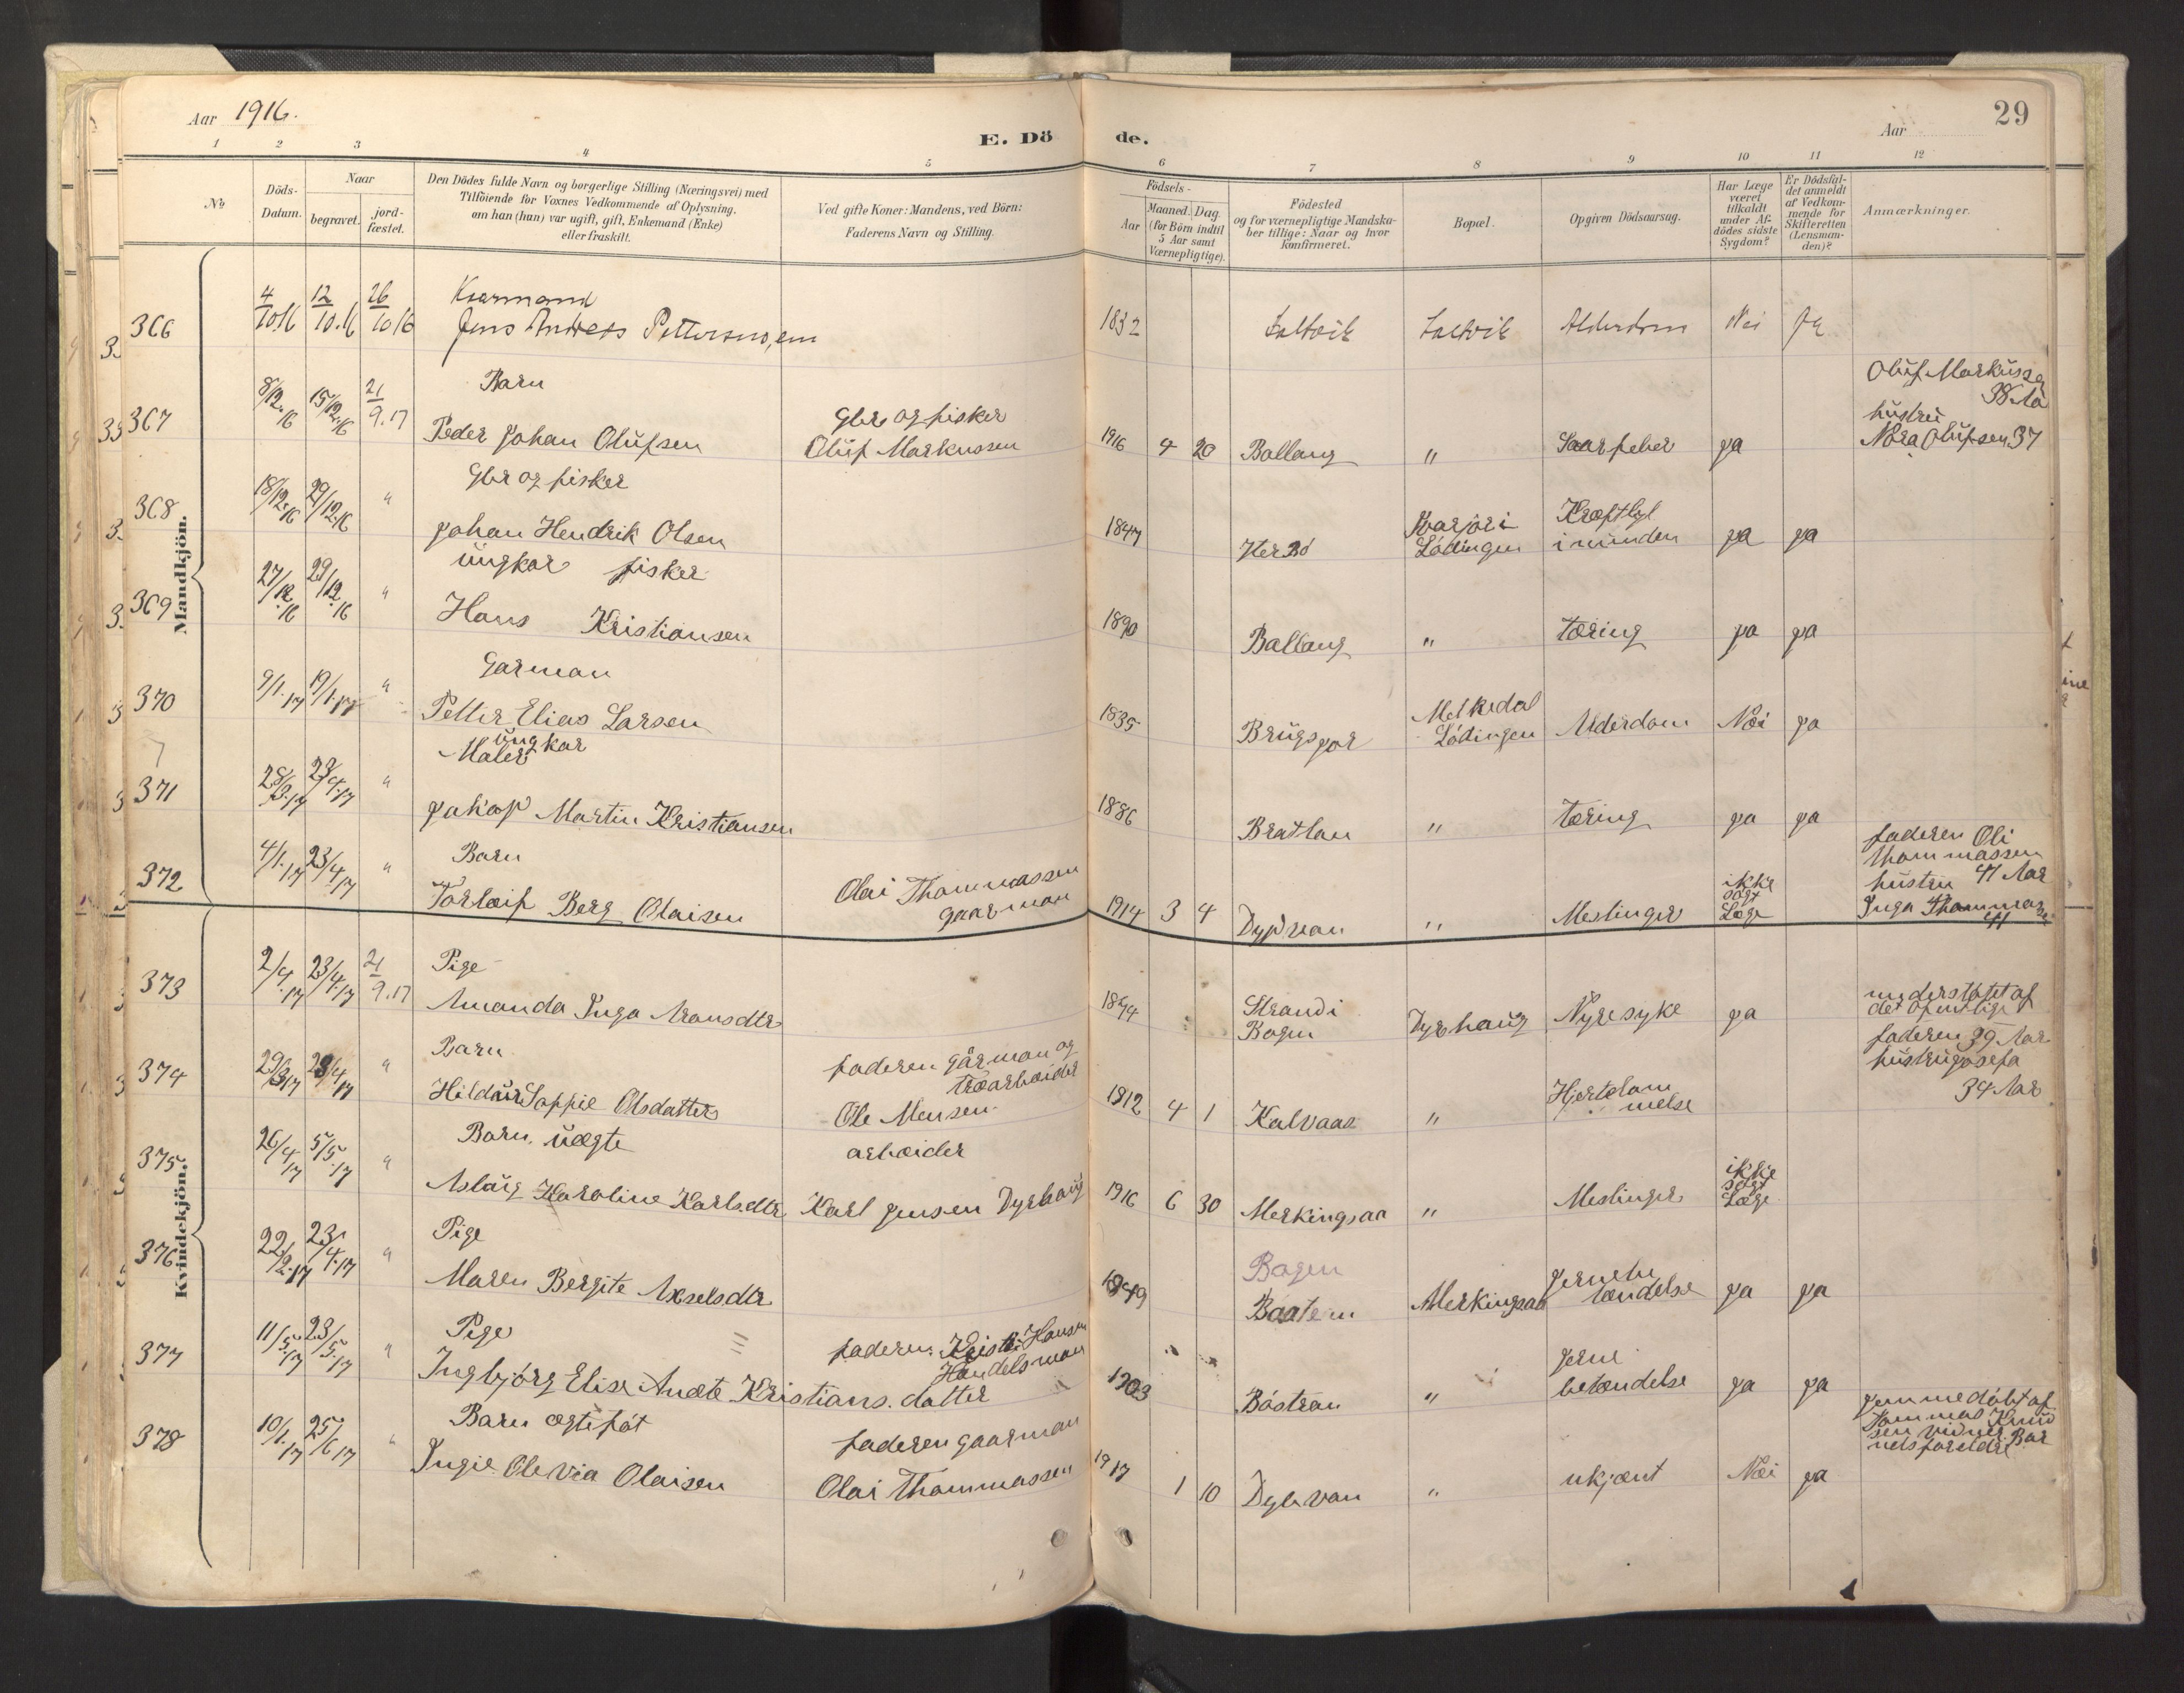 Aar 1916.
E. Dö de.
Aar
29
1 2 3 4 5 6 7 8 9 10 11 12
No
Döds-
Datum.
Naar
begravet.
jord-
fæstet.
Den Dödes fulde Navn og borgerlige Stilling (Næringsvei) med
Tilföiende for Voxnes Vedkommende af Oplysning,
om han (hun) var ugift, gift, Enkemand (Enke)
eller fraskilt.
Ved gifte Koner: Mandens, ved Börn:
Faderens Navn og Stilling.
Födsels-
Aar
Maaned. Dag.
(for Börn indtil
5 Aar samt
Værnepligtige).
Födested
og for værnepligtige Mandska-
ber tillige: Naar og hvor
konfirmeret.
Bopæl.
Opgiven Dödsaarsag.
Har Læge
været
tilkaldt
under Af-
dödes sidste
Sygdom?
Er Dödsfal-
det anmeldt
af Vedkom-
mende for
Skifteretten
(Lensman-
den)?
Anmærkninger.
Mandkjön.
366 4/10 16 12/10.16 26/10 16
Jens Andreas
1832 Nei Ja
367 8/12.16 15/12.16 21/9.17 Barn
Peder Johan Olufsen
Gbr og fisker
Oluf Markussen
1916 4 20 Ballang " ja
Oluf Markussen
38 Aa
hustru
Nora Olufsen 37
368 18/12.16 29/12.16 " Gbr og fisker
Johan Hendrik Olsen
1847
Lödingen
i munden ja ja
369 27/12.16 29/12.16 " ungkar fisker
Hans Kristiansen
1890 Ballang " tæring ja ja
370 9/1.17 19/1.17 " Garman
Petter Elias Larsen
1835
Melkedal
Lödingen Alderdom Nei ja
371 28/3.17 23/4.17 " ungkar
Maler
Jakop Martin Kristiansen
1886 " tæring ja ja
372 4/1.17 23/4.17 " Barn
Torleif Berg Olaisen
Olai Thommassen
gaarman
1914 3 4 " Meslinger
ikke
sögt
Læge
faderen Oli
Thommassen
hustru 47 Aar
Inga
Kvindekjön.
373 2/4.17 23/4.17 21/9.17 Pige
Amanda Inga Aronsdtr
Strand i
Bogen Dyrhaug Nyresyke ja
understötet af
det ofentlige
374 29/3 17 23/4 17 " Barn
Hildur Soppie Olsdatter
faderen gårman og
træarbeider
Ole Monsen
1912 4 1 Kalvaas "
Hjertelam
melse
faderen 39 Aar
hustru Josefa
34 Aar
375 26/4 17 5/5.17 " Barn. uægte
Aslaug Karoline Karlsdtr
arbeider
Karl Jensen Dyrhaug
1916 6 30 Merkingsaa " Meslinger
ikke
sögt
Læge
376 22/2.17 23/4.17 " Pige
Maren Bergite Axselsdtr
1849
Bogen
Merkingsaa
jernebe
tændelse ja ja
377 11/5.17 23/5.17 " Pige
Ingbjörg Elise Anete Kristians.datter
faderen: Hansen
Handelsman
1903 Böstran "
jerne
betændelse ja ja
378 10/1.17 25/6 17 " Barn ægteföt
Ingie Olevia Olaisen
faderen gaarman
Olai Thommassen
1917 1 10 " ukjent Nei ja
jemmedöbt af